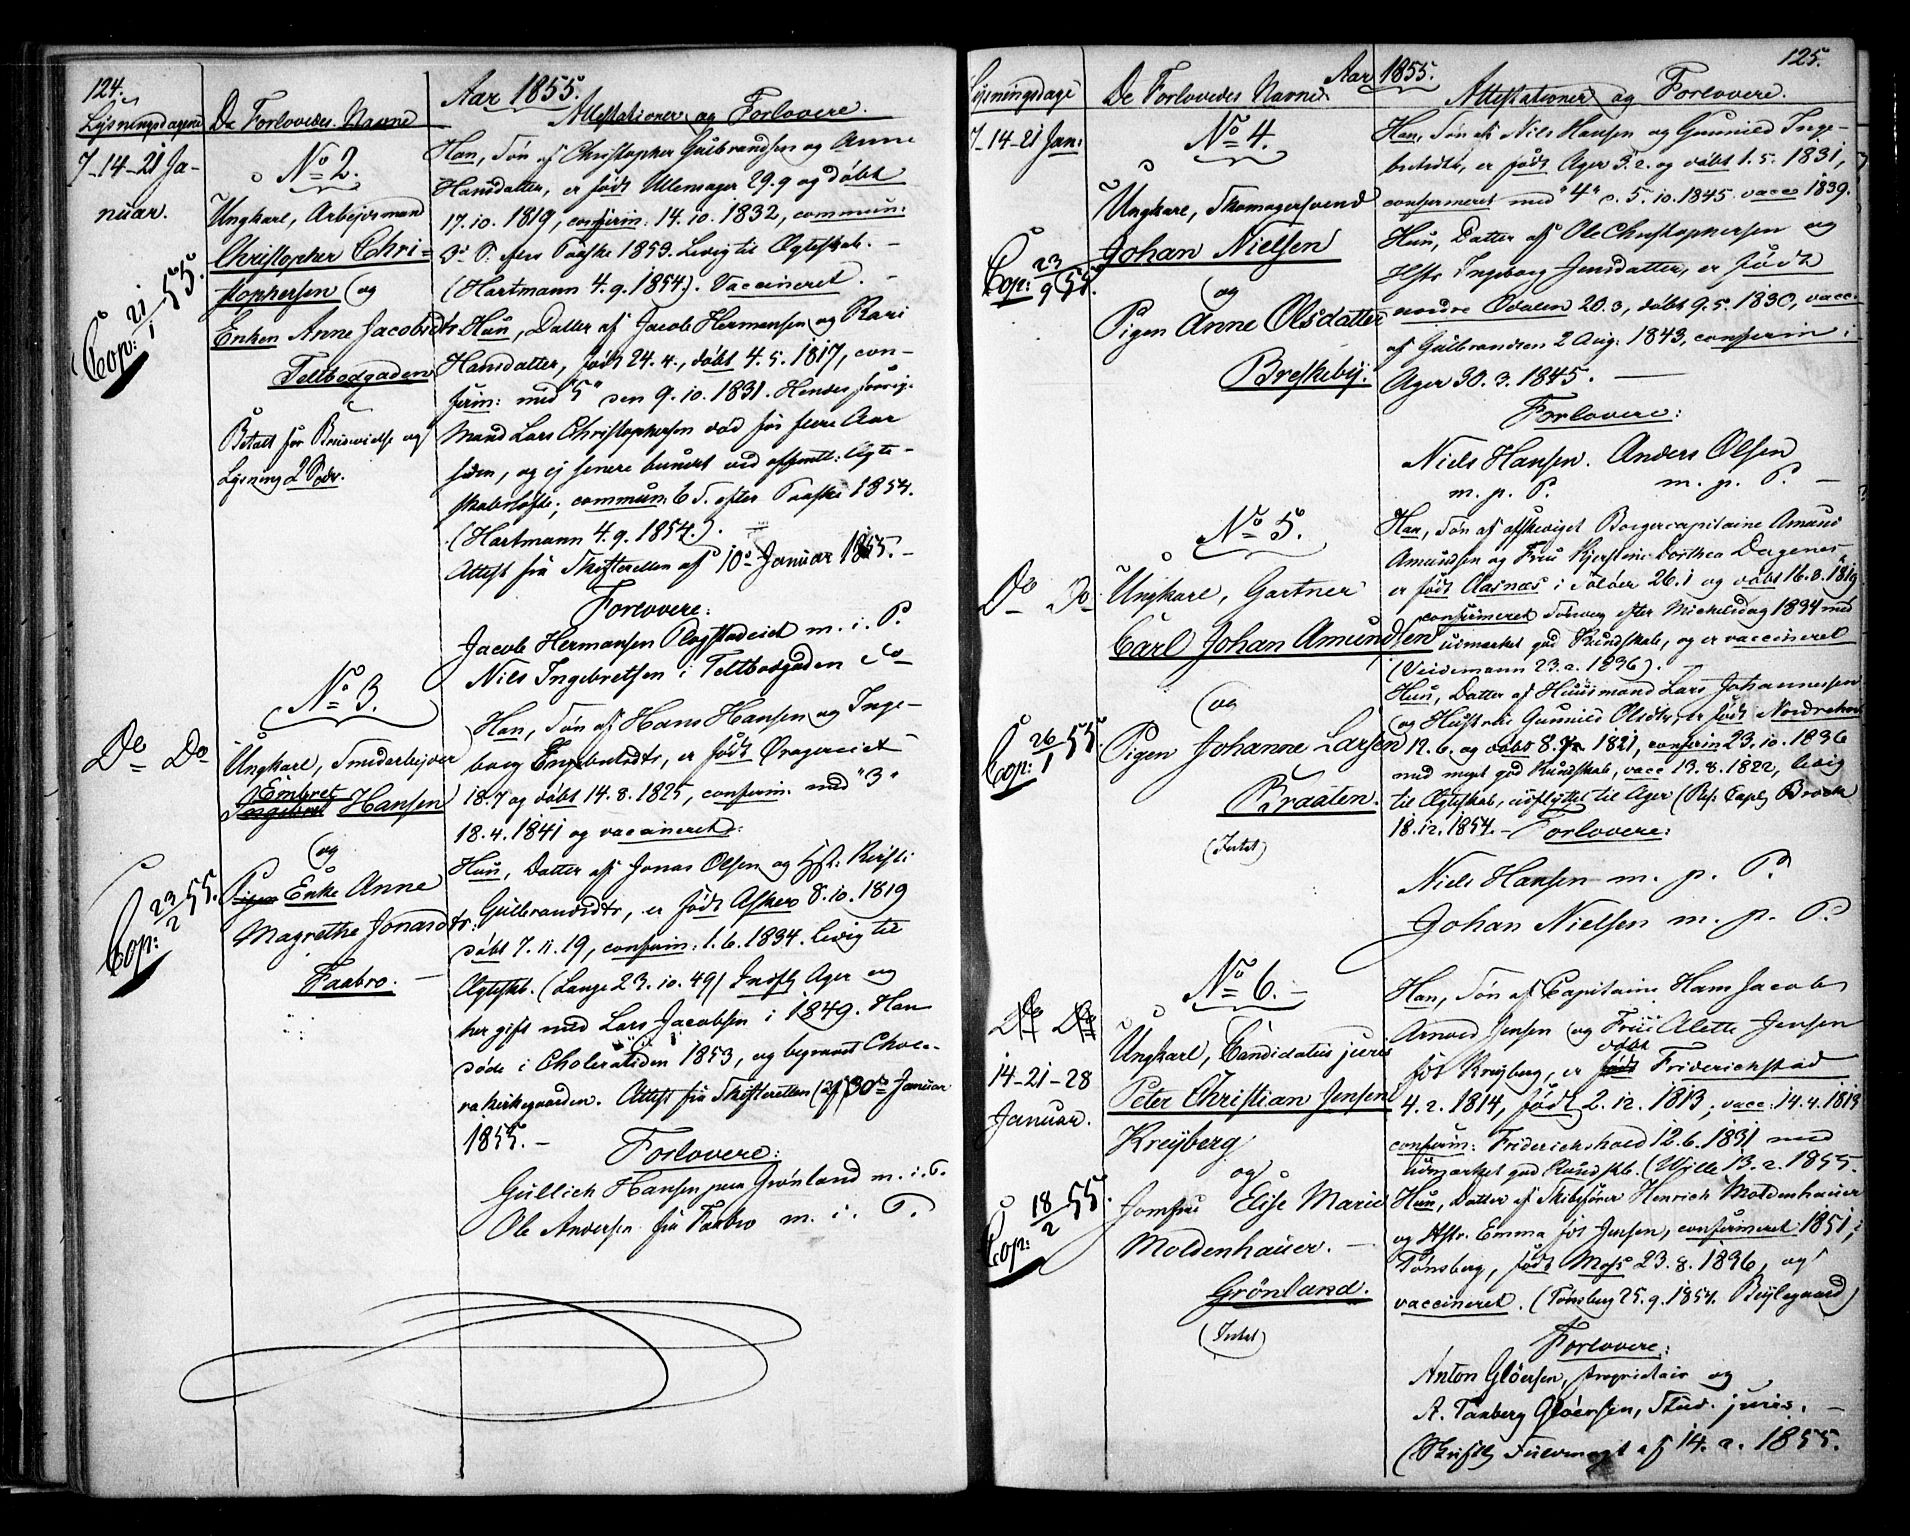 124.
Aar 1855.
Lysningsdagene
De Forlovedes Navne
Attestationer og Forlovere.
7-14-21 Ja-
nuar.
No 2.
Ungkarl, Arbejdsmand
Christopher Chri-
stophersen og
Enken Anne Jacobsdtr
Teltbodgaden
Cop: 21/1 55.
Betalt for Brudevielse og
Lysning 2 Spdr.
Han, Søn af Christopher Gulbrandsen og Anne
Hansdatter, er født Ullensager 29.9 og døbt
17.10. 1819, confirm. 14.10. 1832, commun:
3. S. efter Paaske 1853. Ledig til Ægteskab. -
(Hartmann 4.9.1854). Vaccineret. -
Hun, Datter af Jacob Hermansen og Kari
Hansdatter, født 24.4., døbt 4.5. 1817, con-
firm: med "5" den 9.10. 1831. Hendes forrige
Mand Lars Christophersen død for flere Aar
siden, og ej senere bundet ved offentl: Ægte-
skabsløfte; commun: 6 S. efter Paaske 1854.
(Hartmann 4.9.1854.).
Attest fra Skifteretten af 10de Januar 1855. -
Forlovere:
Jacob Hermansen Plogstadeiet m. i. P.
Niels Ingebretsen i Teltbodgaden do
Do Do
No 3.
Ungkarl, Smedarbejder
Embret
Ingebret Hansen
og
Pigen Enke Anne
Magrethe Jonasdtr.
Faabro. -
Cop: 23/2 55.
Han, Søn af Hans Hansen og Inge-
borg Engebretsdtr, er født Dragereiet
18.7 og døbt 14.8. 1825, confirm. med "3"
18.4. 1841 og vaccineret.
Hun, Datter af Jonas Olsen og Hst. Kirsti
Gulbrandsdtr, er født Asker 8.10. 1819
døbt 7.11.19, confirm: 1.6.1834. Ledig til
Ægteskb. (Lange 23.10.49) Indfl. Ager og
her gift med Lars Jacobsen i 1849. Han
døde i Choleratiden 1853, og begravet Chole-
rakirkegaarden. Attest fra Skifteretten (af) 30te Januar
1855. -
Forlovere:
Gullich Hansen paa Grønland m. i. P.
Ole Andersen fra Faabro m. i. P.
125.
Aar 1855.
Lysningsdage
De Forlovedes Navne
Attestationer og Forlovere.
7-14-21 Jan:
No 4.
Ungkarl, Skomagersvend
Johan Nielsen
og
Pigen Anne Olsdatter
Breskeby.
Cop: 23/9 55.
Han, Søn af Niels Hansen og Gunnild Inge-
bretsdtr, er født Ager 3.2. og døbt 1.5. 1831,
confirmeret med "4" d. 5.10.1845. vacc 1839.
Hun, Datter af Ole Christophersen og
Hstr Ingeborg Jensdatter, er født
nordre Odalen 20.3, døbt 9.5.1830, vacc.
af Gulbrandsen 2 Aug: 1843, confirm: i
Ager 30.3.1845. -
Forlovere:
Niels Hansen. Anders Olsen
m. p. P. m. p. P. -
Do Do
No 5.
Ungkarl, Gartner
Carl Johan Amundsen
og
Pigen Johanne Larsen
Braaten.
(Intet)
Cop: 26/1 55.
Han, Søn af afskediget Borgercapitaine Amund
Amundsen og Frue Kjerstine Dorthea Dagenes.
er født Aasnæs i Soløer 26.1 og døbt 16.8.1819
confirmeret Søndag efter Michelsdag 1834 med
udmærket god Kundskab, og er vaccineret
(Veidemann 23.2.1836).
Hun, Datter af Huusmand Lars Johannessen
og Hustr. Gunnild Olsdtr, er født Nordrehov
12.6. og døbt 8.7. 1821, confirm 23.10.1836
med meget god Kundskab, vacc 13.8.1822, ledig
til Ægteskab, udflyttet til Ager (Res: Capl. Brock
18.12.1854. - Forlovere:
Niels Hansen m. p. P.
Johan Nielsen m. p. P.
Do Do
14-21-28
Januar.
No 6. -
Ungkarl, Candidatus juris
Peter Christian Jensen
Kreyberg
og
Jomfru Elise Marie
Moldenhauer. -
Grønland.
(Intet)
Cop: 18/2 55.
Han, Søn af Capitaine Hans Jacob
Arnved Jensen og Frue Alette Jensen
døbt
fød Kreyberg, er født Friderichstad
4.2.1814, født 2.12.1813, vacc: 14.4.1819
confirm: Friderichshald 12.6.1831 med
udmærket god Kundskb. (Wille 13.2.1855.
Hun, Datter af Skibsfører Henrich Moldenhauer
og Hstr. Emma fød Jensen, confirmeret 1851, i
Tønsberg, født Moss 23.8.1836, og
vaccineret. (Tønsberg 25.9.1854. Bøylegaard)
Forlovere:
Anton Gløersen, Proprietair og
A. Tanberg Gløersen, Stud. juris. -
(Skriftl. Fuldmagt af 14.2.1855.